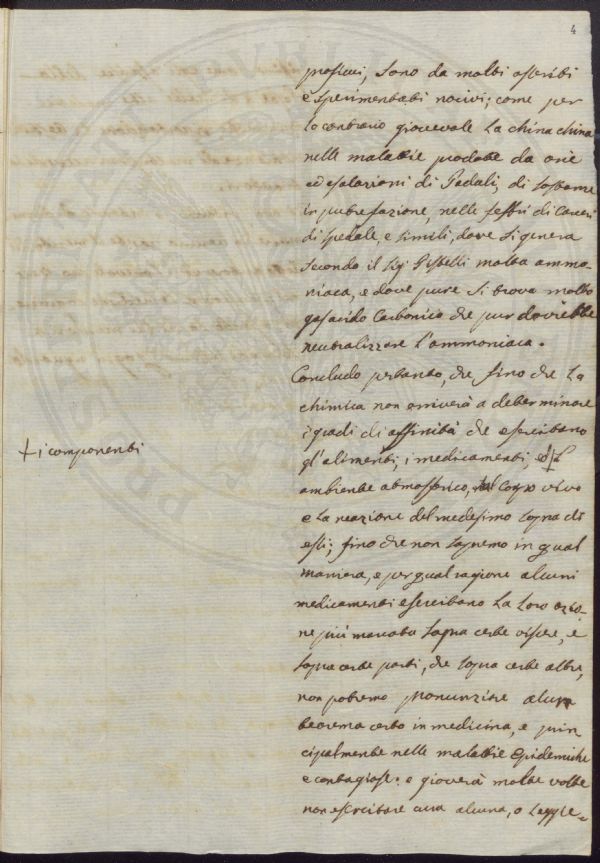 4
proficui, sono da molti asseriti
e sperimentati nocivi; come per
lo contrario giovevole la china china
nelle malattie prodotte da arie
ed esalazioni di Paduli, di sostanze
in putrefazione, nelle febbri di Carceri
di spedale, e simili, dove si genera
secondo il Sig.
molta ammo-
niaca, e dove pure si trova molto
gas acido Carbonico che pur dovrebbe
neutralizzare l'ammoniaca.
Concludo pertanto, che fino che la
chimica non arriverà a determinare
i gradi di affinità che esercitano
gl'alimenti, i medicamenti, ed ┼ l'
┼ i componenti
ambiente atmosferico, sul Corpo vivo
e la reazione del medesimo sopra di
essi; fino che non sapremo in qual
maniera, e per qual ragione alcuni
medicamenti esercitano la loro azio-
ne più marcata sopra certe viscere, e
sopra certe parti, che sopra certe altre,
non potremo pronunziare alcun
teorema certo in medicina, e prin-
cipalmente nelle malattie Epidemiche
e contagiose: e gioverà molte volte
non esercitare cura alcuna, o legge=